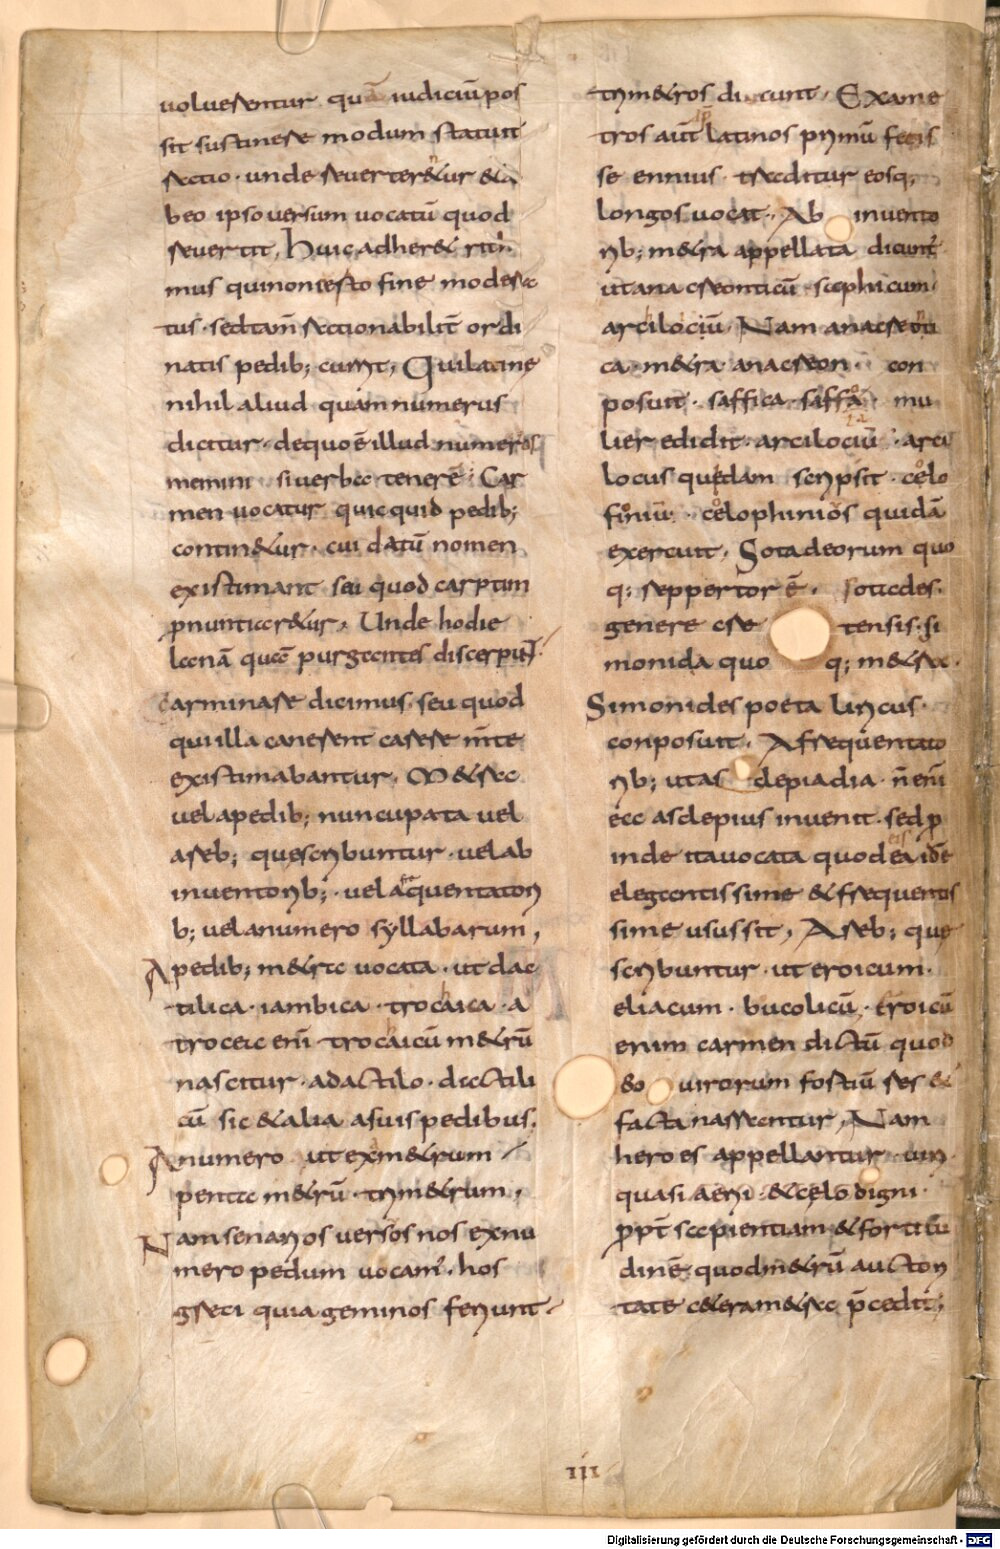 uoluerentur quā iudiciū pos
sit sustinere modum statuit
rectio · unde reuerter&ur &a
beo ipso uersum uocatū quod
reuertit, Huic adher& rith
mus qui non certo fine modera
tus · sed tam̄ rationabilit̄ ordi
natis pedib; currit, Qui latine
nihil aliud quam numerus
dicitur · de quo ē illud numeros
memini si uerba tenerē; Car
men uocatur quicquid pedib;
contin&ur · cui datū nomen
existimant seu quod carptim
pnuntiar&ur, Unde hodie
lanā quā purgantes discerpuṭ
Carminare dicimus · seu quod
qui illa canerent carere m̄te
existimabantur, M&ra
uel a pedib; nuncupata uel
a reb; que scribuntur · uel ab
inuentorib; · uel a frequentatori
b; uel a numero syllabarum,
A pedib; m&ra uocata · ut dac
tilica · iambica · trocaica · a
troceic eni trocaicū m&rū
nascitur · a dactilo · dactili
cū sic & alia a suis pedibus.
A numero ut exam&rum
penta m&rū · trim&rum,
Nam senarios uersos nos ex nu
mero pedum uocam' · hos
greci quia geminos feriunt ·
trim&ros dicunt, Exame
tros aut latinos primū fecis
se ennius traditur eosq;
longos uocat., Ab inuento
rib; m&ra appellata dicunt'
ut anacreonticū · saphicum ·
arcilociū, Nam anacreon
ca · m&ra anacreon con
posuit · saffica · saffa mu
lier edidit · arcilociū · arci
locus quedam scripsit · colo
foniū · colophinios quidā
exercuit, Sotadeorum quo
q; reppertor ē, sotades ·
genere cre tensis · si
monida quo q; m&ra ·
Simonides poeta liricus ·
conposuit, A frequentato
rib; ut as clepiadia · n̄ eni
ea asclepius inuenit · sed p
inde ita uocata quod ea idē
elegantissime & frequentis
sime usus sit, A reb; que
scribuntur · ut eroicum ·
eliacum · bucolicū, Eroicū
enim carmen dictū quod
eo uirorum fortiū res &
facta narrantur, Nam
heroes appellantur uiri
quasi aerii & celo digni ·
ppt sapientiam & fortitu
dinē, quod m&rū auctori
tate c&era m&ra p̄cedit;
III
Digitalisierung gefördert durch die Deutsche Forschungsgemeinschaft - DFG